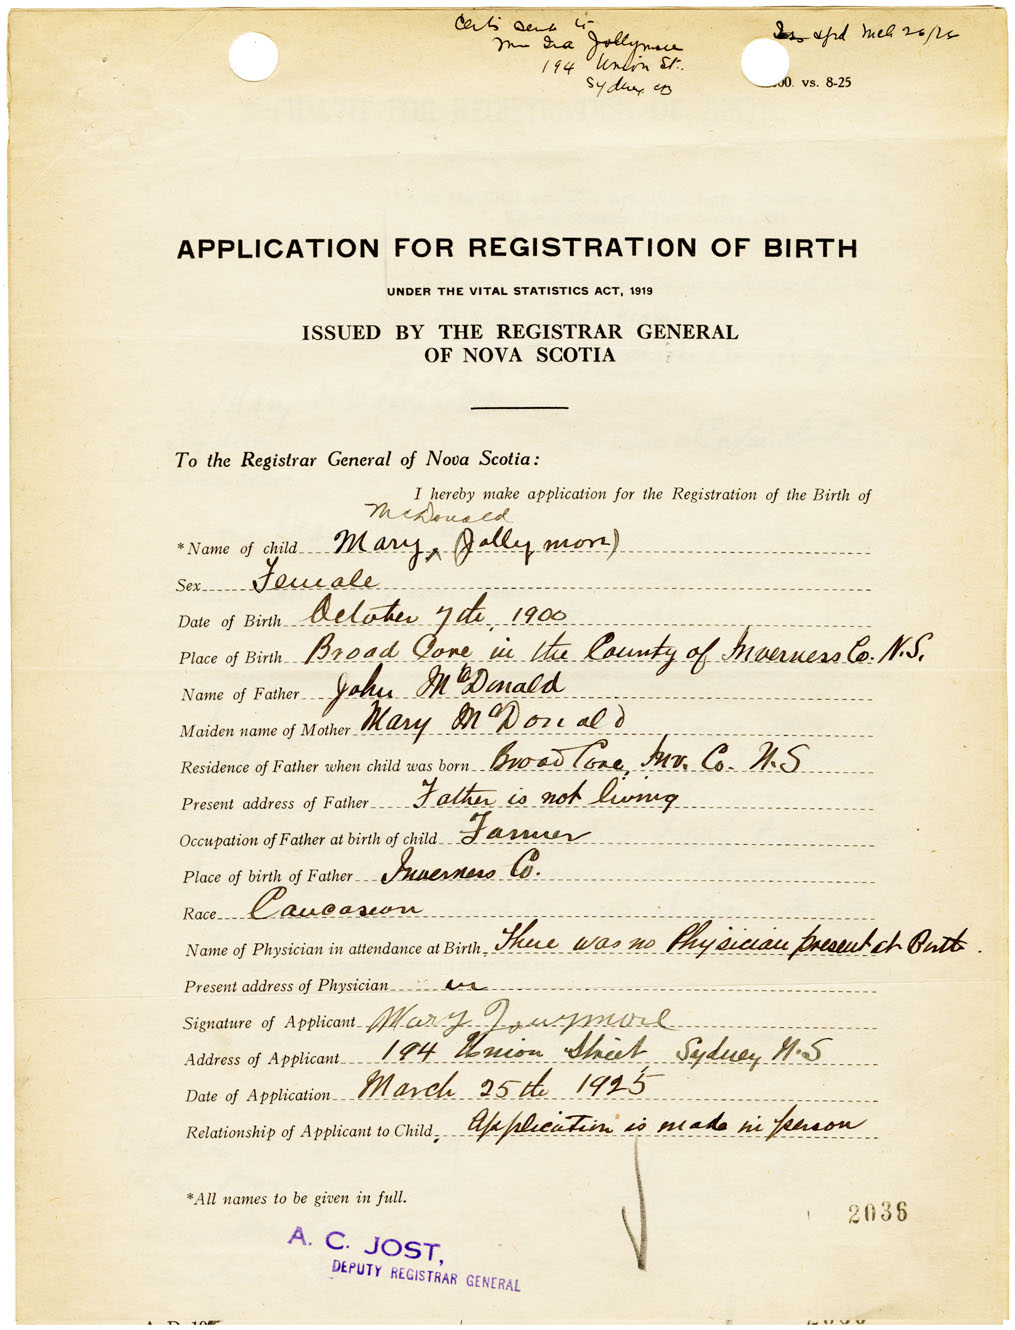 Certs sent to
Mrs Ira Jollymore
194 Union St.
Sydney CB
Iss
00. vs. 8-25
APPLICATION FOR REGISTRATION OF BIRTH
UNDER THE VITAL STATISTICS ACT, 1919
ISSUED BY THE REGISTRAR GENERAL
OF NOVA SCOTIA
To the Registrar General of Nova Scotia:
I hereby make application for the Registration of the Birth of
McDonald
*Name of child Mary ‸ (Jollymore)
Sex Female
Date of Birth October 7th, 1900
Place of Birth Broad Cove in the County of Inverness Co. N.S.
Name of Father John McDonald
Maiden name of Mother Mary McDonald
Residence of Father when child was born Broad Cove, Inv. Co. N.S
Present address of Father Father is not living
Occupation of Father at birth of child Farmer
Place of birth of Father Inverness Co.
Race Caucasion
Name of Physician in attendance at Birth, There was no Physician present at Birth.
Present address of Physician
Signature of Applicant Mary Jollymore
Address of Applicant 194 Union Street, Sydney N.S
Date of Application March 25th 1925
Relationship of Applicant to Child, Application is made in person
*All names to be given in full.
2036
A. C. JOST,
DEPUTY REGISTRAR GENERAL